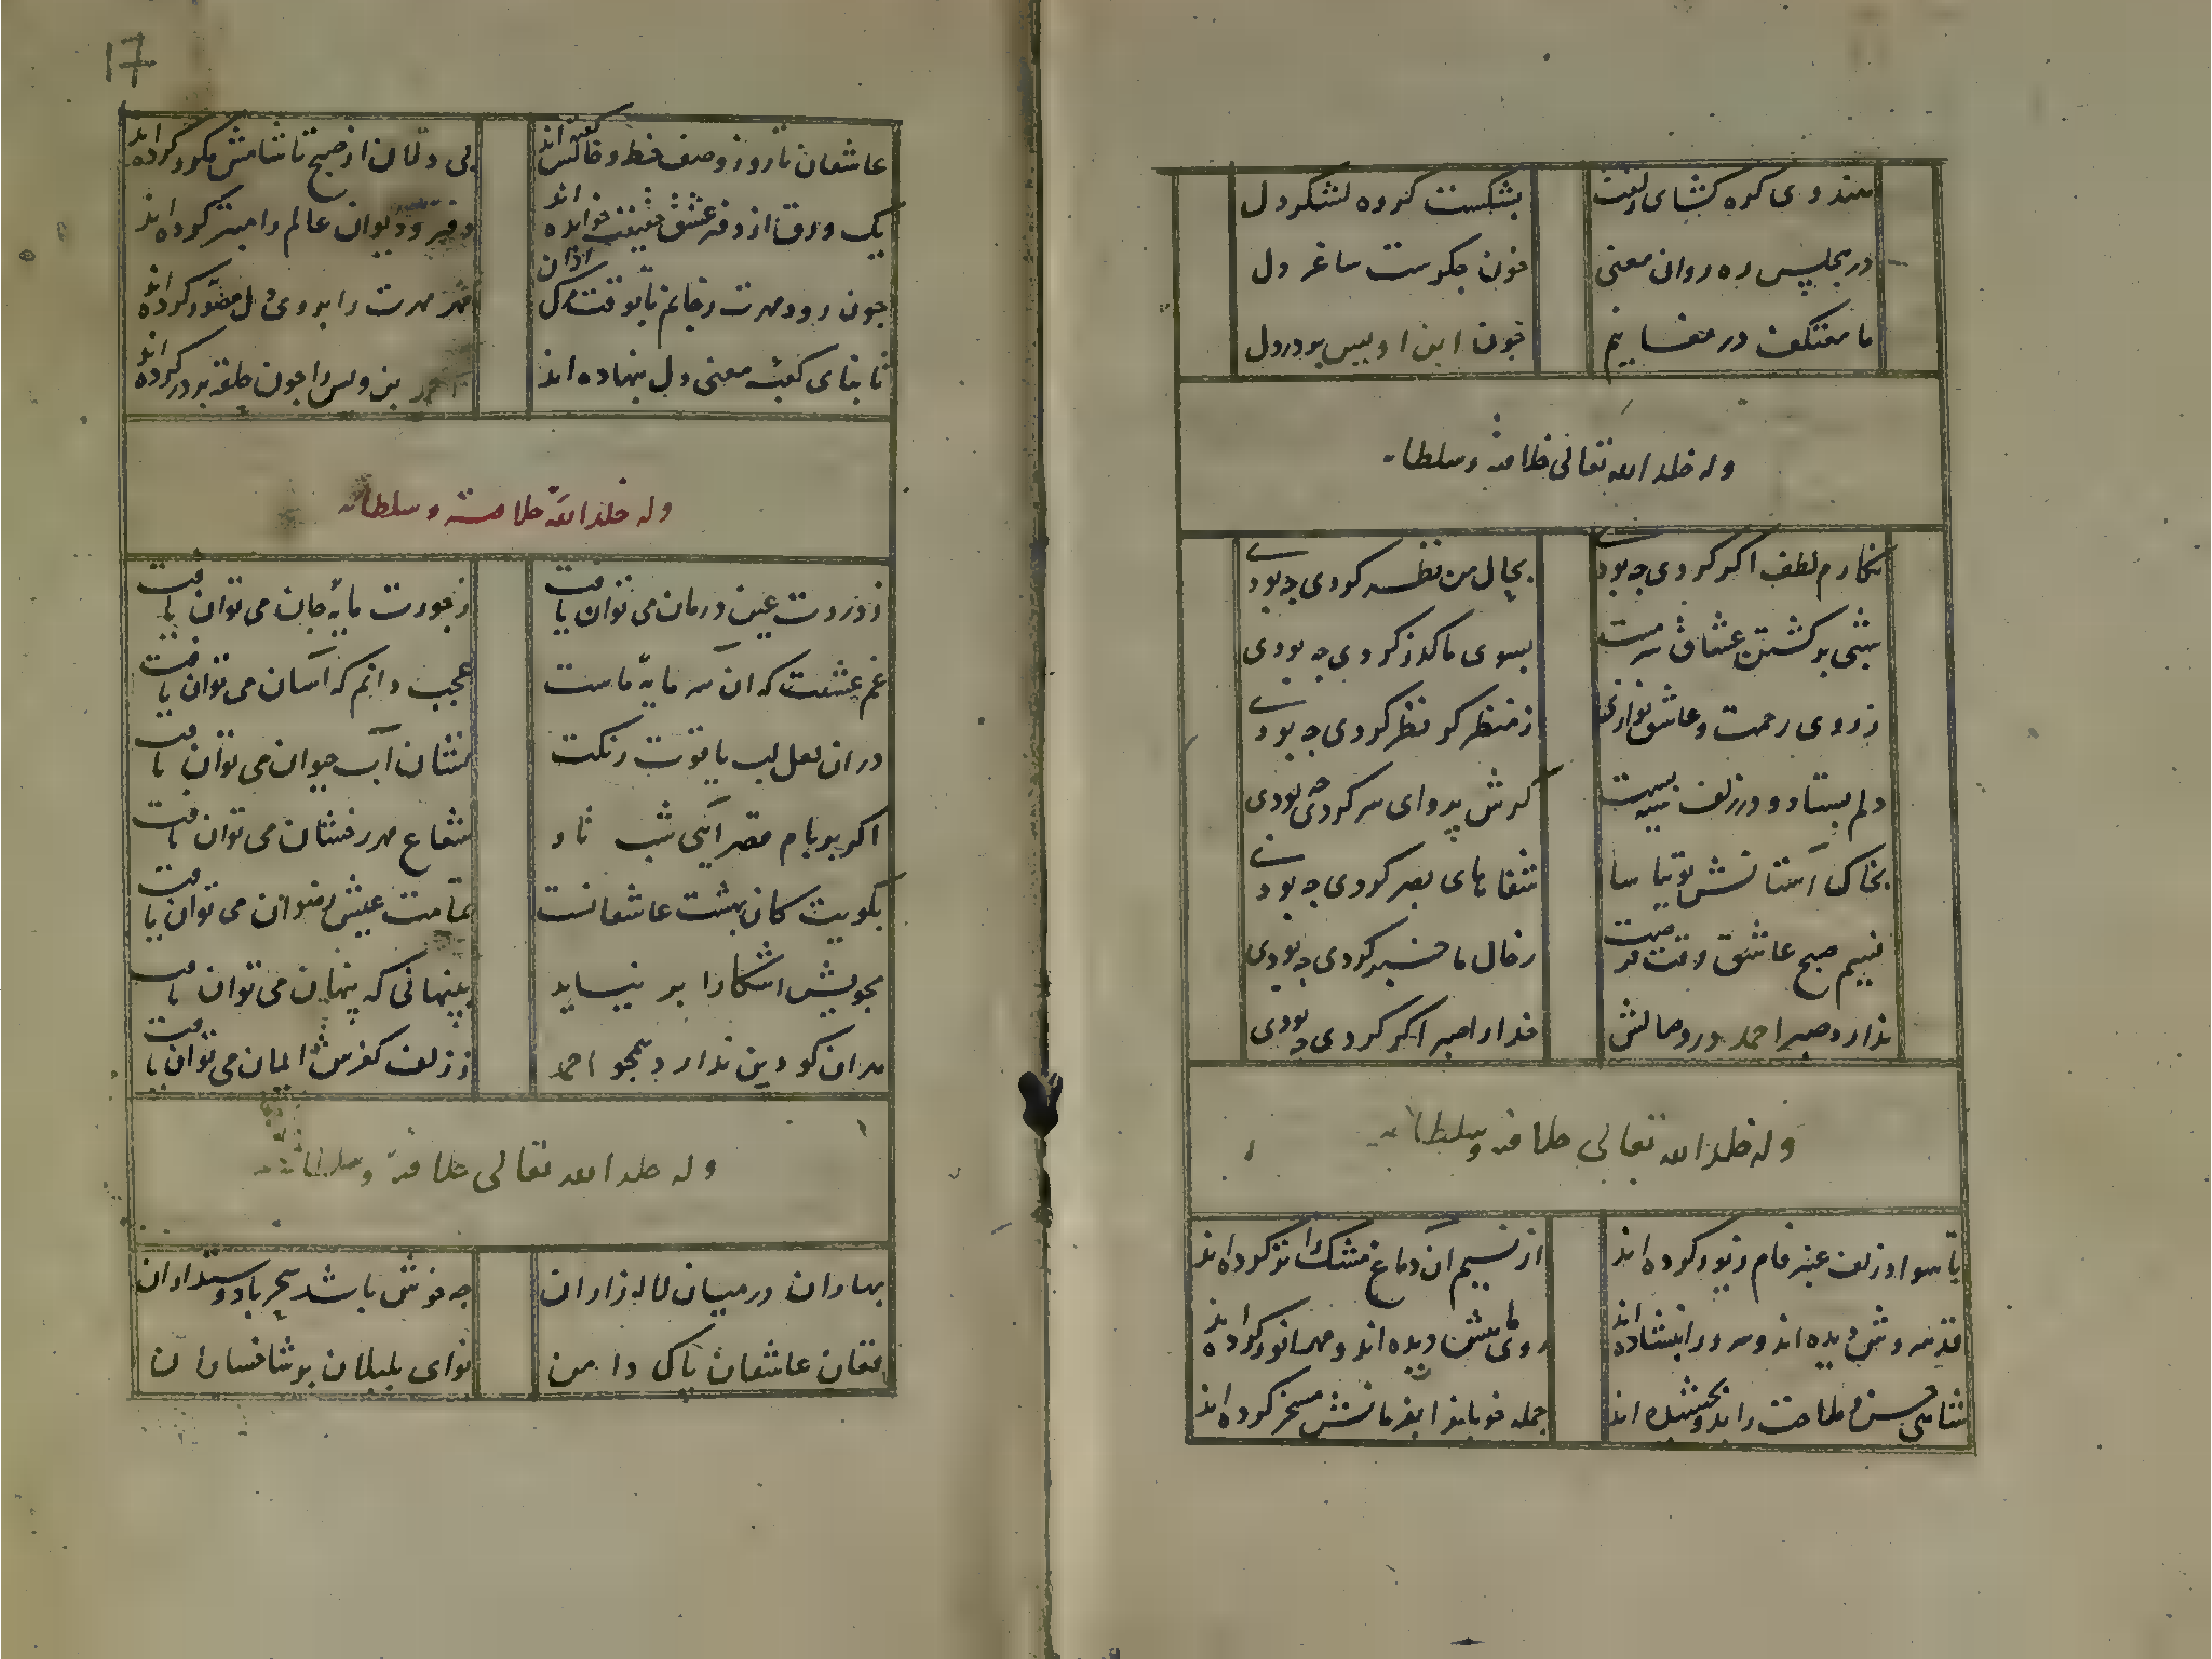 هندوی کره کشای زلفت بشکست کرده لشکر دل
در مجلس ره روان معنی خون جکرست ساغر دل
ما معتکف در مغانیم چون ابن اویس بر در دل
وله خلد الله تعالی خلافته وسلطانه
نکارم لطف اکر کردی چه بودی بحال من نظر کردی چه بودی
شبی بر کشتن عشاق سرمست بسوی ما کذر کردی چه بودی
ز روی رحمت و عاشق نوازی ز منظر کر نظر کردی چه بودی
دلم بستاد و در زلف سیه بست کرش پروای سر کردی چه بودی
بخاک آستانش توتیا سا شفاهای بصر کردی چه بودی
نسیم صبح عاشق وقت فرصت ز حال ما خبر کردی چه بودی
ندارد صبر احمد در وصالش خدارا صبر اکر کردی چه بودی
وله خلد الله تعالی خلافته وسلطانه
تا سواد زلف عنبر فام زیور کرده اند از نسیم آن دماغ مشک را تر کرده اند
قد سروش دیده اند و سرو را بنشانده اند روی ماهش دیده اند و مهر انور کرده اند
شاهی حسن و ملاحت را بدو بخشیده اند جمله خوبانرا بفرمانش مسخر کرده اند
17
عاشقان تا روز وصف خط و خالش کفته اند بی دلان از صبح تا شامش مکرر کرده اند
یک ورق از دفتر عشق حقیقت خوانده اند دفتر و دیوان عالم را مبتر کرده اند
چون رود مهرت ز خانم تا بوقت مرک ازان مهر مهرت را بروی دل مصور کرده اند
تا بنای کعبه معنی دل بنهاده اند احمد بن ویس را چون حلقه بر در کرده اند
وله خلد الله خلافته وسلطانه
ز دردت عین درمان می توان یافت ز جورت مایه جان می توان یافت
غم عشقت که آن سرمایه ماست عجب دانم که آسان می توان یافت
در ان لعل لب یاقوت رنکت نشان آب حیوان می توان یافت
اکر بر بام قصر آیی شب تار شعاع مهر رخشان می توان یافت
بکویت کان بهشت عاشقانست تمامت عیش رضوان می توان یافت
بجویش آشکارا بر نیاید بپنهانی که پنهان می توان یافت
بدان کو دین ندارد همجو احمد ز زلف کفرش ایمان می توان یافت
وله خلد الله تعالی خلافته وسلطانه
بهاران در میان لاله زاران جه خوش باشد سحر با دوستداران
فغان عاشقان پاک دامن نوای بلبلان بر شاخساران